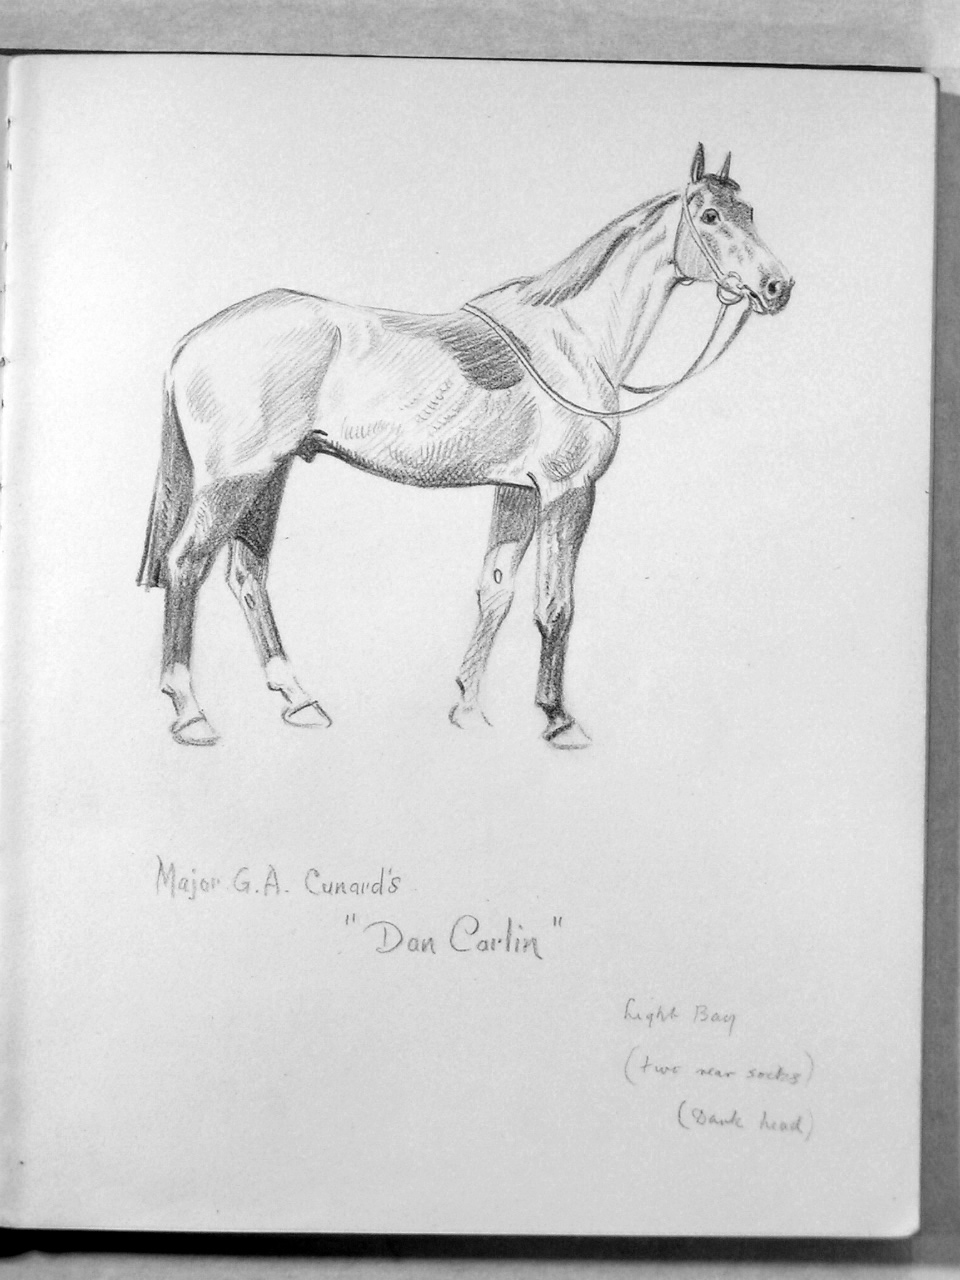 Major G.A. Cunard's
"Dan Carlin"
Light Bay
(two rear socks)
(Dark head)